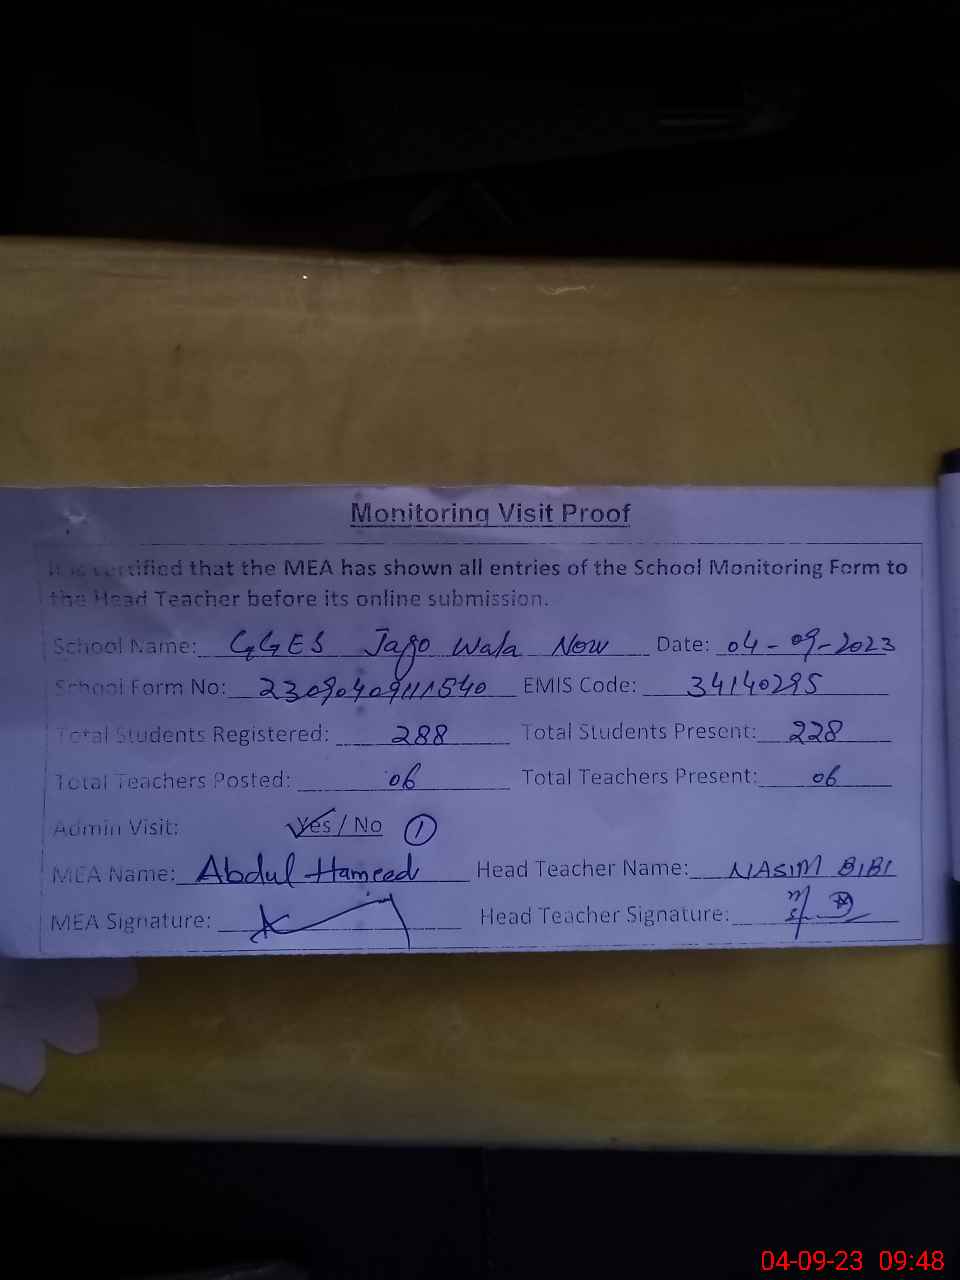 Monitoring Visit Proof
It is certified that the MEA has shown all entries of the School Monitoring Form to
the Head Teacher before its online submission.
School Name: GGES Jago Wala Now Date: 04-09-2023
School Form No: 23090409111540 EMIS Code: 34140295
Total Students Registered: 288 Total Students Present: 228
Total Teachers Posted: 06 Total Teachers Present: 06
Admin Visit: Yes / No 1
MEA Name: Abdul Hameed Head Teacher Name: NASIM BIBI
MEA Signature: Head Teacher Signature:
04-09-23 09:48